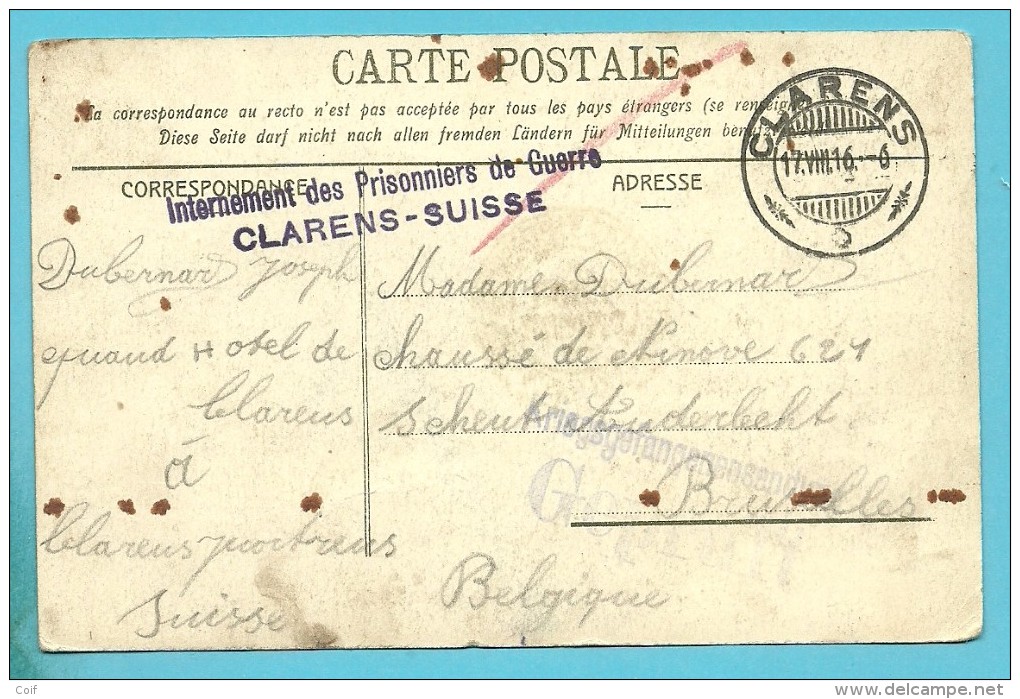 CARTE POSTALE
La correspondance au recto n'est pas acceptée par tous les pays étrangers (se renseigne
Diese Seite darf nicht nach allen fremden Ländern für Mitteilungen benutzt
CORRESPONDANCE
ADRESSE
Internement des Prisonniers de Guerre
CLARENS-SUISSE
CLARENS
17.VIII.16.-6
Dubernard Joseph
quand Hotel de
Clarens
à
Clarens
Suisse
Madame Dubernard
chaussé de Ninove 621
Scheut
Bruxelles
Belgique
Kriegsgefangenensendung
Coif
www.delcampe.net